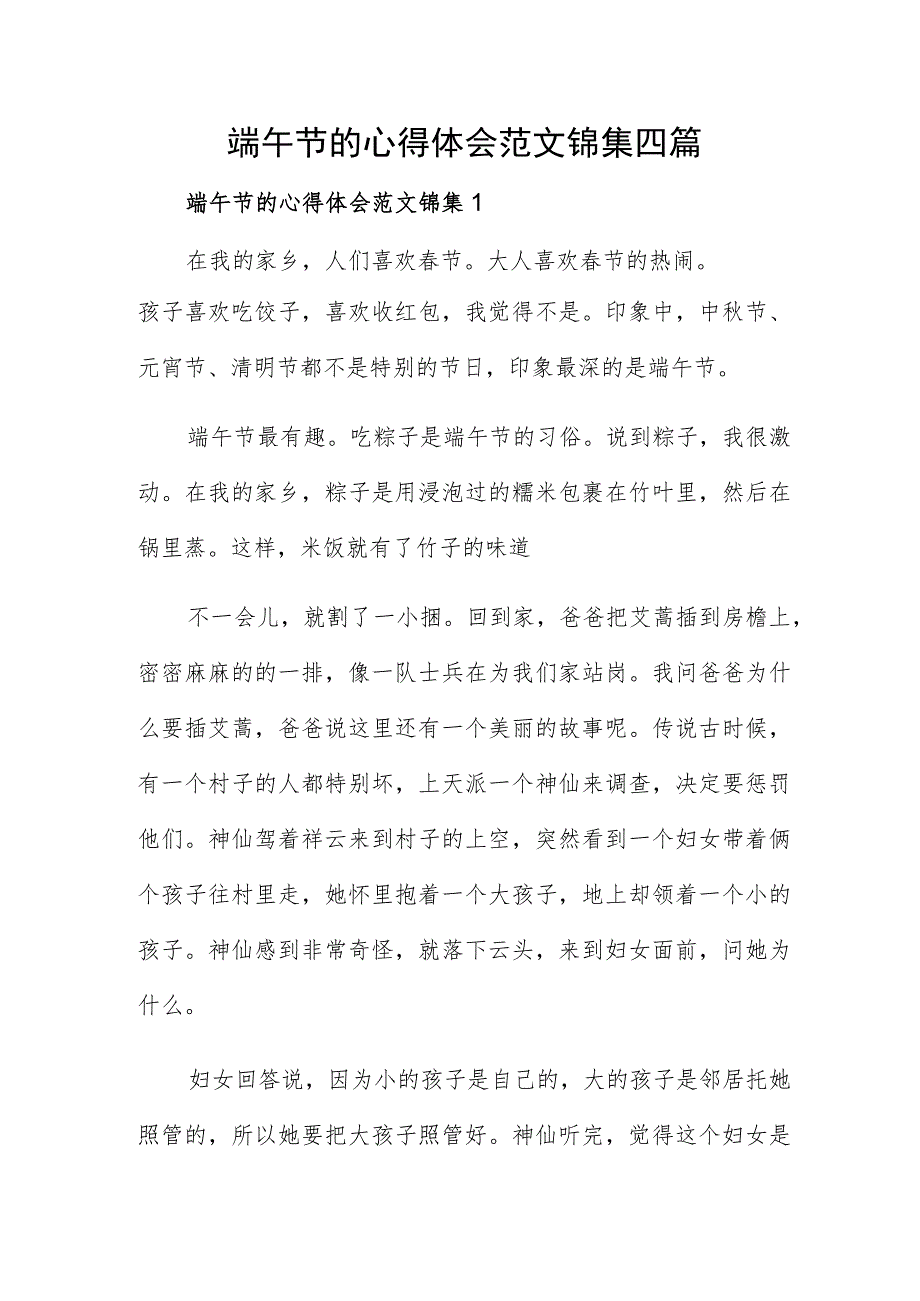 端午节的心得体会范文锦集四篇
端午节的心得体会范文锦集 1
在我的家乡，人们喜欢春节。大人喜欢春节的热闹。
孩子喜欢吃饺子，喜欢收红包，我觉得不是。印象中，中秋节、
元宵节、清明节都不是特别的节日，印象最深的是端午节。
端午节最有趣。吃粽子是端午节的习俗。说到粽子，我很激
动。在我的家乡，粽子是用浸泡过的糯米包裹在竹叶里，然后在
锅里蒸。这样，米饭就有了竹子的味道
不一会儿，就割了一小捆。回到家，爸爸把艾蒿插到房檐上，
密密麻麻的的一排，像一队士兵在为我们家站岗。我问爸爸为什
么要插艾蒿，爸爸说这里还有一个美丽的故事呢。传说古时候，
有一个村子的人都特别坏，上天派一个神仙来调查，决定要惩罚
他们。神仙驾着祥云来到村子的上空，突然看到一个妇女带着俩
个孩子往村里走，她怀里抱着一个大孩子，地上却领着一个小的
孩子。神仙感到非常奇怪，就落下云头，来到妇女面前，问她为
什么。
妇女回答说，因为小的孩子是自己的，大的孩子是邻居托她
照管的，所以她要把大孩子照管好。神仙听完，觉得这个妇女是